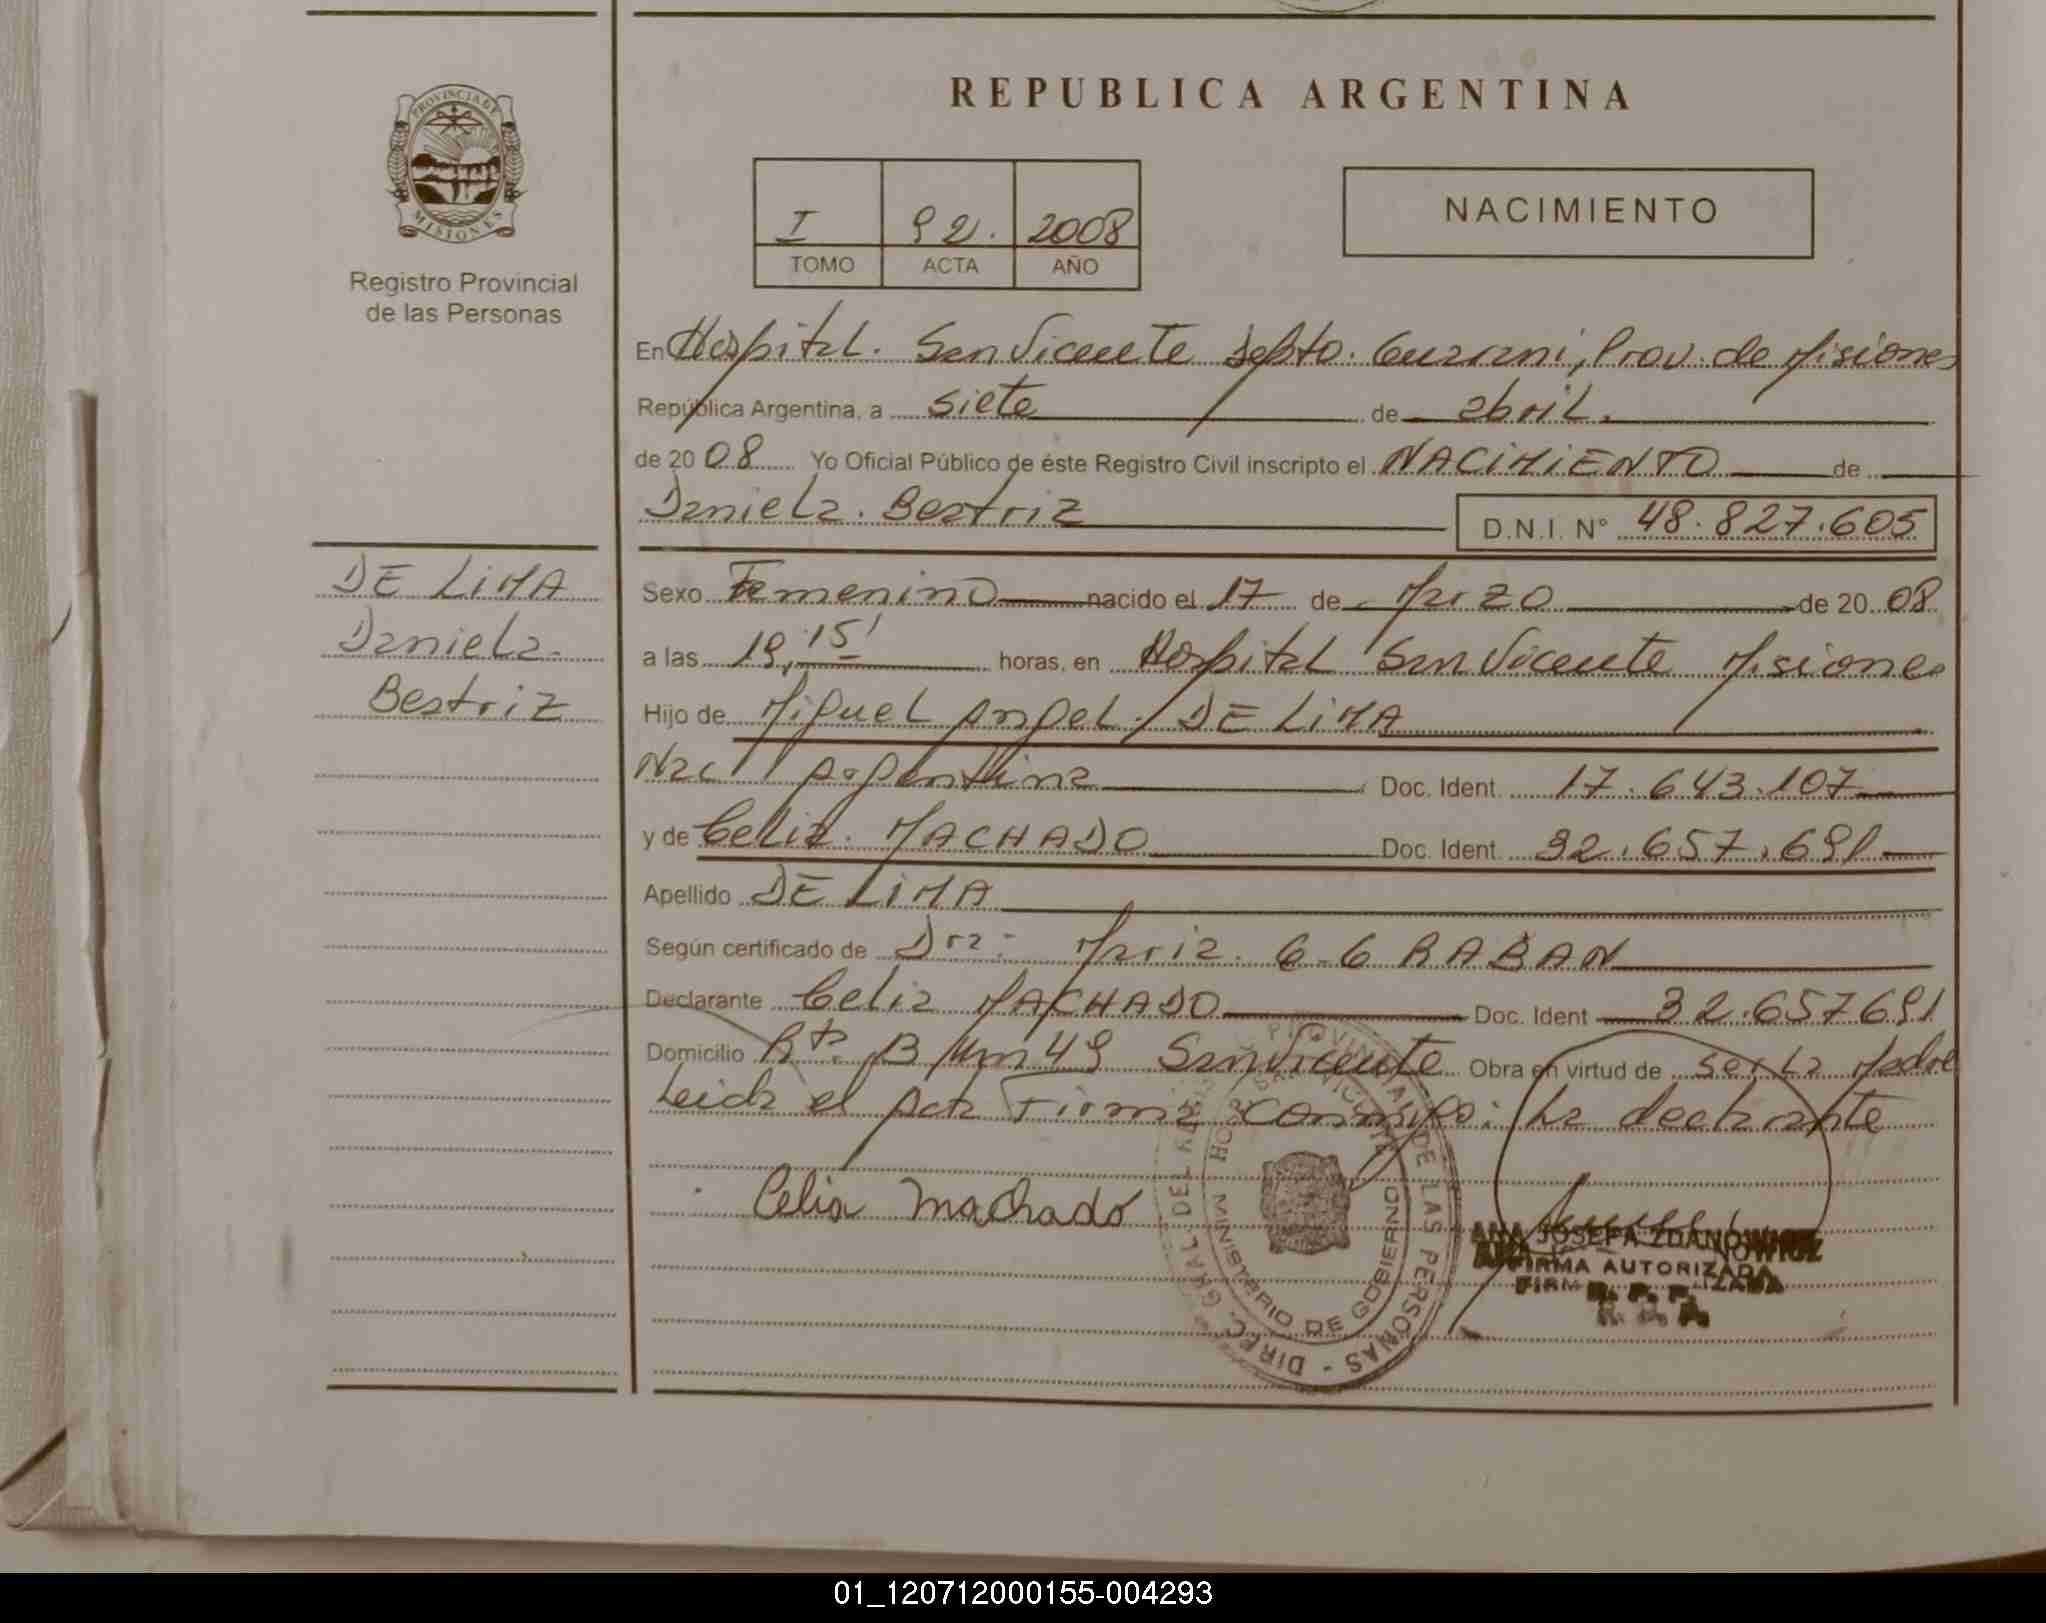 REPUBLICA ARGENTINA
PROVINCIA DE
MISIONES
Registro Provincial
de las Personas
I 92. 2008
TOMO ACTA AÑO
NACIMIENTO
En Hospital. San Vicente Depto. Guarani, Prov. de Misiones
República Argentina, a siete de abril.
de 2008 Yo Oficial Público de éste Registro Civil inscripto el NACIMIENTO de
Daniela. Beatriz D.N.I. N° 48.827.605
DE LIMA
Daniela
Beatriz
Sexo Femenino nacido el 17 de Marzo de 2008
a las 19,15' horas, en Hospital San Vicente Misiones
Hijo de Miguel Angel. DE LIMA
Nac Argentina Doc. Ident. 17.643.107
y de Celia. MACHADO Doc. Ident. 32.657.691
Apellido DE LIMA
Según certificado de Dra: Maria. G-G RABAN
Declarante Celia MACHADO Doc. Ident 32.657691
Domicilio Rta. 13 Km 49 San Vicente Obra en virtud de ser La Madre
Leida el Acta Firma conmigo: La declarante
Celia Machado
DIREC. GRAL. DEL REG. PROVINCIAL DE LAS PERSONAS
HOSP. SAN VICENTE
MINISTERIO DE GOBIERNO
ANA JOSEFA ZDANOWICZ
FIRMA AUTORIZADA
R. P. P.
01_120712000155-004293